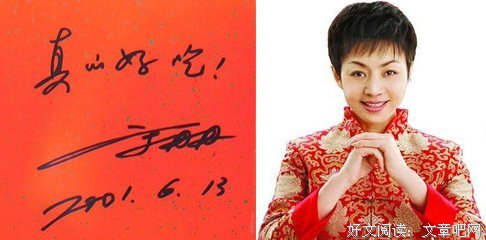 真的好吃！
丹丹
2001. 6. 13
好文阅读：文章吧网